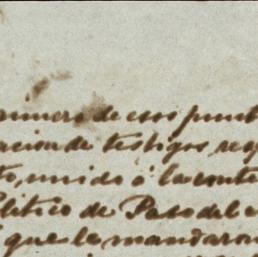 numero de esos puebl
acion de testigos res
to, unido ó la conte
olitico de Paso del
que le mandaron